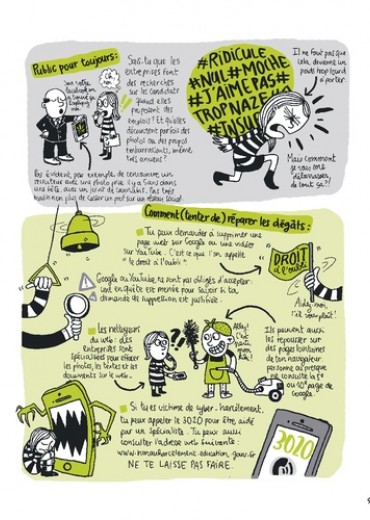 Public pour toujours:
Sais-tu que les
entreprises font des
recherches
sur les candidats
quand elles
proposent des
emplois? Et qu'elles
découvrent parfois des
photos ou des propos
embarrassants, même
très anciens?
#RIDICULE
#NUL#MOCHE
#J'AIMEPAS#
TROPNAZE
#INSUL
Il ne faut pas que
cela devienne un
poids trop lourd
à porter.
Mais comment
je vais me
débarrasser
de tout ça?!
Pas évident, par exemple, de convaincre un
recruteur avec une photo prise il y a 5 ans dans
une fête, avec un joint de cannabis. Pas très
malin non plus de casser un prof sur un réseau social.
Comment (tenter de) réparer les dégâts:
Tu peux demander à supprimer une
page web sur Google ou une vidéo
sur YouTube. C'est ce que l'on appelle
"le droit à l'oubli".
DROIT
à l'oubli
Google ou YouTube ne sont pas obligés d'accepter:
une enquête est menée pour savoir si ta
demande de suppression est justifiée.
Aidez-moi
s'il vous plaît!
Les nettoyeurs
du web: des
entreprises sont
spécialisées pour effacer
les photos, les textes et les
documents sur le web.
Ils peuvent aussi
les repousser sur
des pages lointaines
de ton navigateur:
personne ou presque
ne consulte la 9e
ou 10e page de
Google.
Si tu es victime de cyber-harcèlement,
tu peux appeler le 3020 pour être aidé
par un spécialiste. Tu peux aussi
consulter l'adresse web suivante:
www.nonauharcelement.education.gouv.fr
NE TE LAISSE PAS FAIRE.
3020